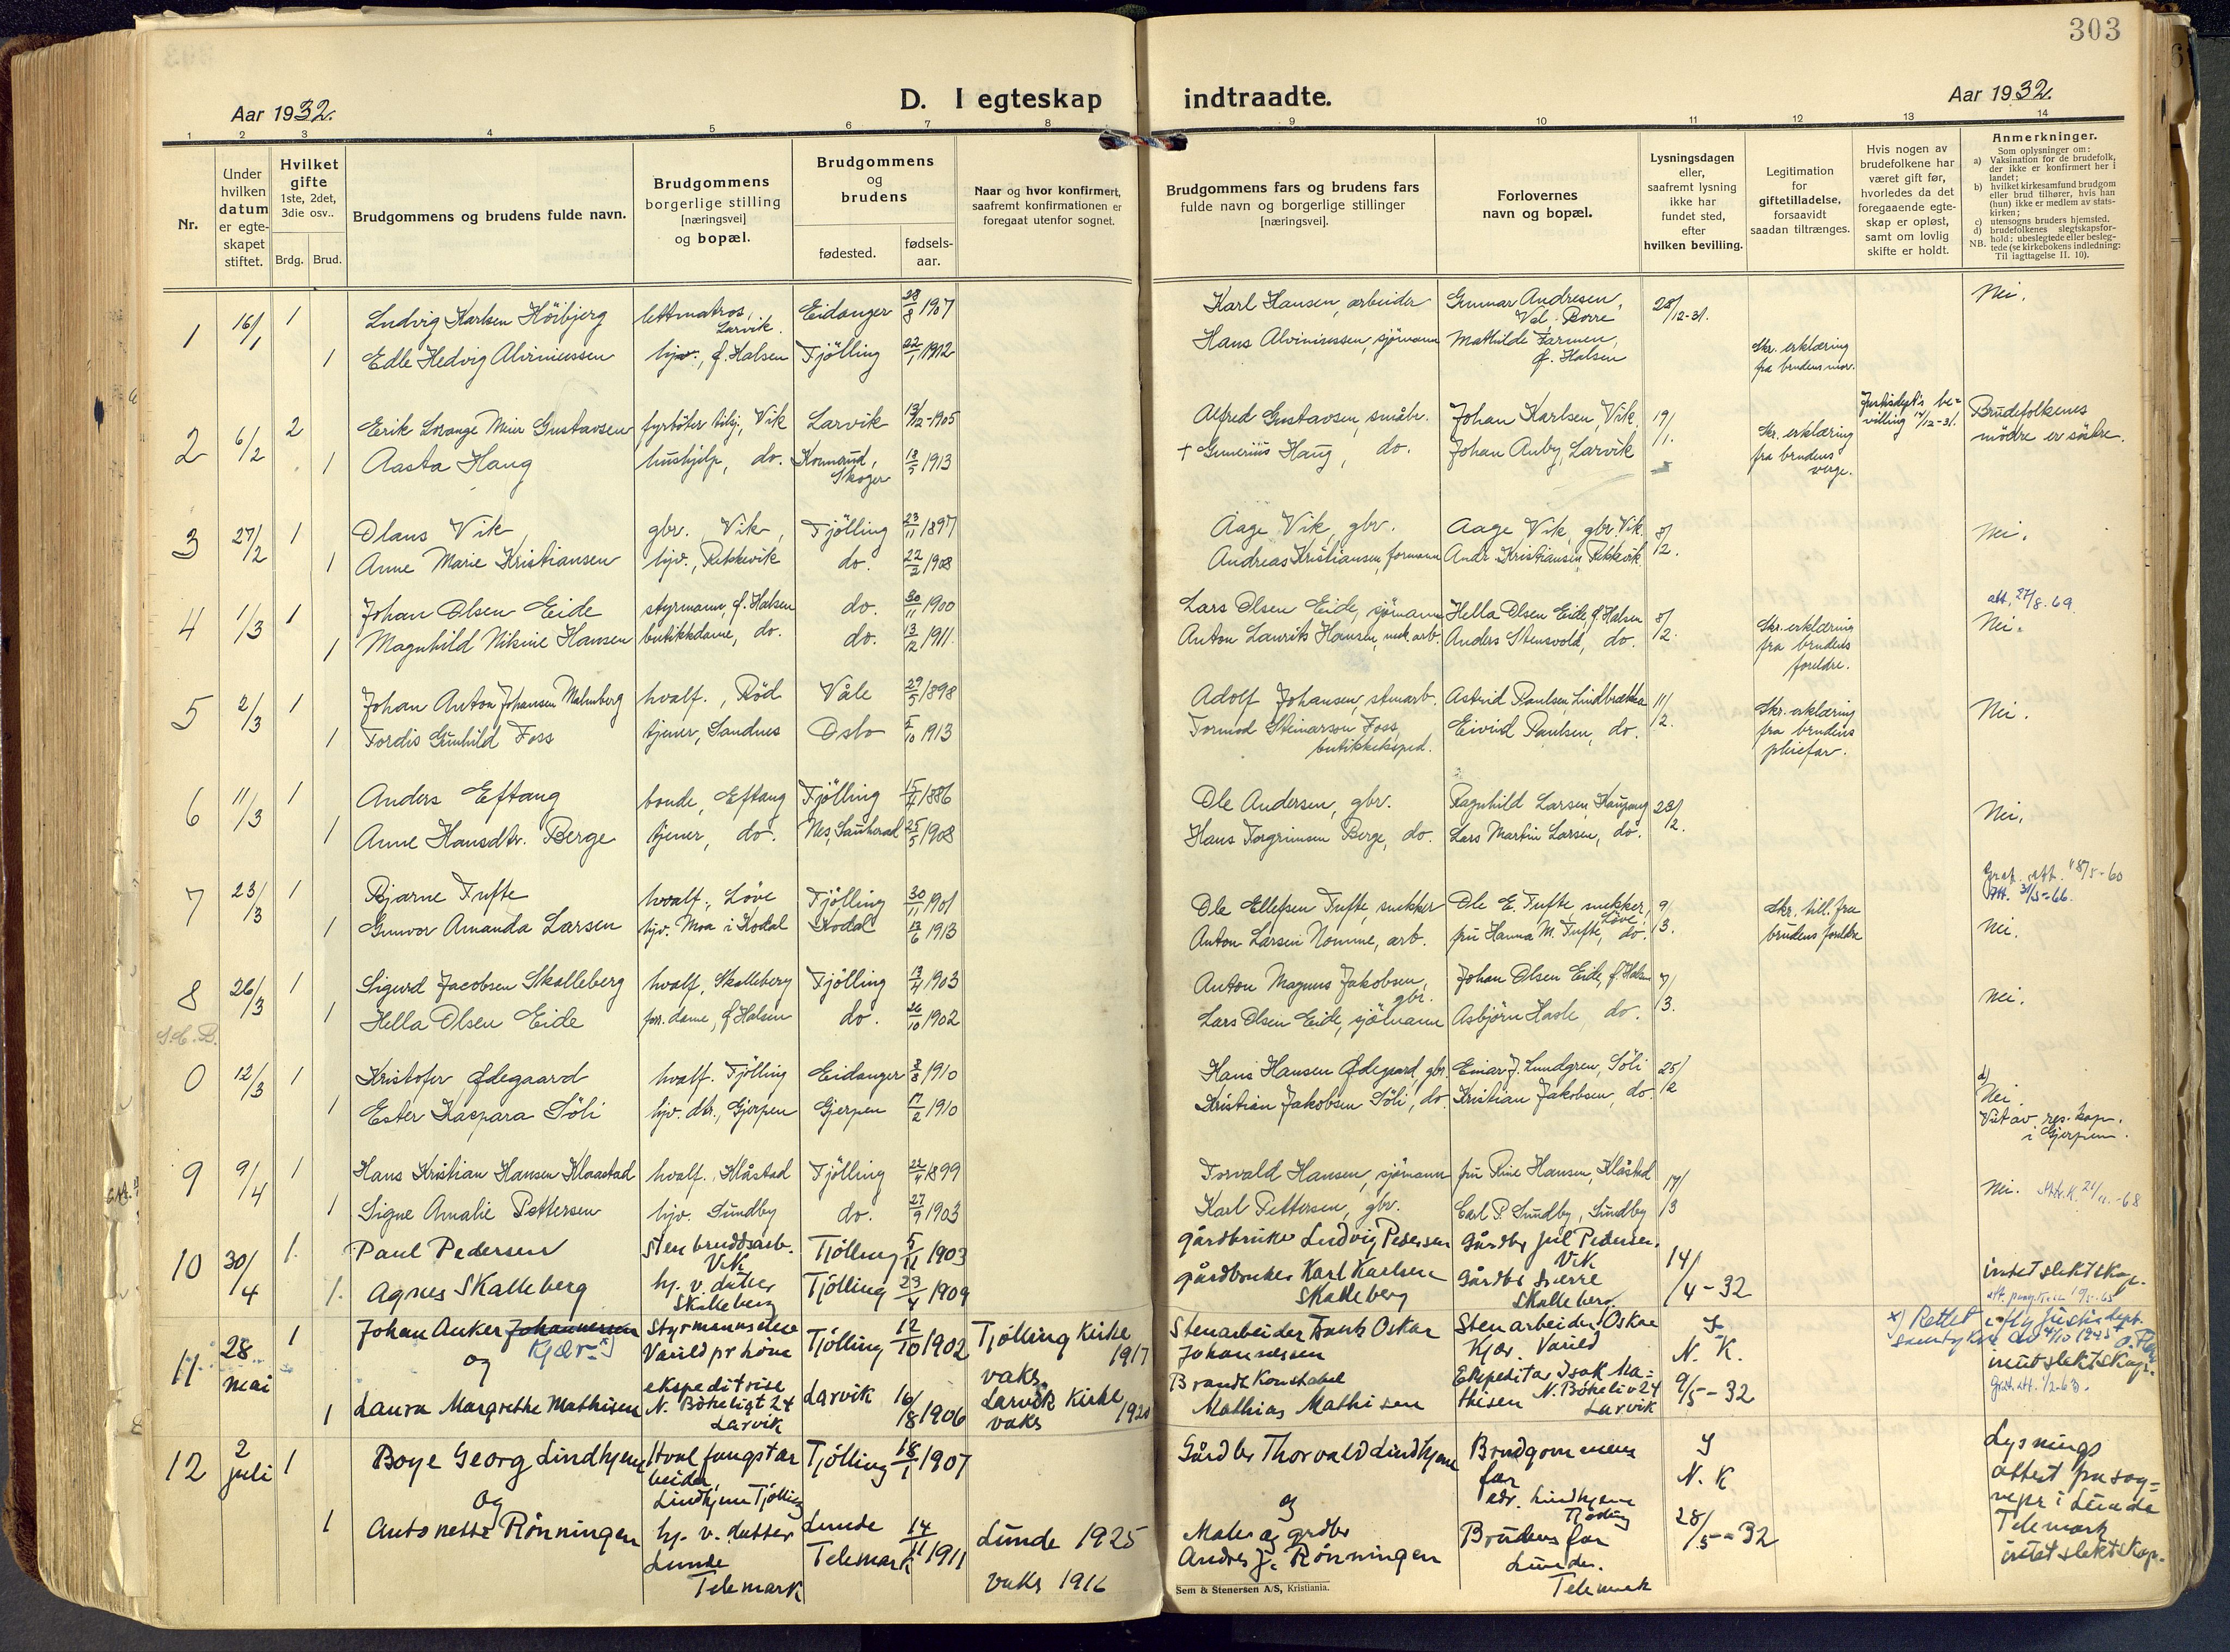 303
Aar 1932.
D. I egteskap indtraadte.
Aar 1932.
1 2 3 4 5 6 7 8 9 10 11 12 13 14
Nr.
Under hvilken datum er egte-skapet stiftet.
Hvilket gifte 1ste, 2det, 3die osv..
Brdg. Brud.
Brudgommens og brudens fulde navn.
Brudgommens borgerlige stilling [næringsvei] og bopæl.
Brudgommens og brudens
fødested.
fødsels-aar.
Naar og hvor konfirmert, saafremt konfirmationen er foregaat utenfor sognet.
Brudgommens fars og brudens fars fulde navn og borgerlige stillinger [næringsvei].
Forlovernes navn og bopæl.
Lysningsdagen eller, saafremt lysning ikke har fundet sted, efter hvilken bevilling.
Legitimation for giftetilladelse, forsaavidt saadan tiltrænges.
Hvis nogen av brudefolkene har været gift før, hvorledes da det foregaaende egte-skap er opløst, samt om lovlig skifte er holdt.
Anmerkninger.
Som oplysninger om:
a) Vaksination for de brudefolk, der ikke er konfirmert her i landet;
b) hvilket kirkesamfund brudgom eller brud tilhører, hvis han (hun) ikke er medlem av stats-kirken;
c) utensogns bruders hjemsted.
d) brudefolkenes slegtskapsfor-hold: ubeslegtede eller besleg-tede (se kirkebokens indledning:
NB. Til iagttagelse II. 10).
1 16/1 1 Ludvig Karlsen Höibjerg lettmatros, Larvik. Eidanger 28/8 1907 Karl Hansen, arbeider Gunnar Andresen, Val. Borre 28/12-31. Nei.
1 Edle Hedvig Alvinussen hjv., f. Halsen Tjölling 22/1 1912 Hans Alviniussen, sjömann Mathilde Farmen, f. Halsen Skr. erklæring fra brudens mor.
2 6/2 2 Erik Lorange Meier Gustavsen fyrbøter tilsj., Vik Larvik 13/12-1905 Alfred Gustavsen, småbr. Johan Karlsen, Vik. 19/1. Justisdept's be=villing 14/12-31. Brudefolkenes mödre er söstre.
1 Aasta Haug hushjelp, do. Konnerud, Skoger 18/5 1913 + Gunerius Haug, do. Johan Auby, Larvik Skr. erklæring fra brudens verge.
3 27/2 1 Olaus Vik gbr. Vik, Tjölling 23/11 1897 Aage Vik, gbr. Aage Vik, gbr. Vik. 8/2. Nei.
1 Anne Marie Kristiansen hjv., Rekkevik do. 22/2 1908 Andreas Kristiansen, formann Andr. Kristiansen, Rekkevik
4 1/3 1 Johan Olsen Eide styrmann, f. Halsen do. 30/11 1900 Lars Olsen Eide, sjömann Hella Olsen Eide, f. Halsen 8/2. att. 27/8.69. Nei.
1 Magnhild Nikine Hansen butikkdame, do. do. 13/12 1911. Anton Laurits Hansen, mek. arb. Anders Stensvold, do. Skr. erklæring fra brudens foreldre.
5 2/3 1 Johan Anton Johansen Malmberg hvalf., Rød Våle 29/5 1898 Adolf Johansen, stenarb. Astrid Paulsen, Lindbrække 11/2. Nei.
1 Tordis Gunhild Foss tjener, Sandnes Oslo 5/10 1913 Tormod Steinarson Foss, butikkeksped. Eivind Paulsen, do. Skr. erklæring fra brudens pleiefar.
6 11/3 1 Anders Eftang bonde, Eftang Tjölling 15/4 1886 Ole Andersen, gbr. Ragnhild Larsen, Kaupang 28/12. Nei.
1 Anne Hansdtr. Berge tjener, do. Nes, Sauherad 25/5 1908 Hans Torgrimsen Berge, do. Lars Martin Larsen, do.
7 23/3 1 Bjarne Tufte hvalf., Löve Tjölling 30/11 1901 Ole Ellefsen Tufte, snekker Ole E. Tufte, snekker, Löve. 9/3. Skr. till. fra brudens foreldre Att. 31/5-66.
1 Gunvor Amanda Larsen hjv. Moa i Kodal Kodal 12/6 1913 Anton Larsen Nomme, arb. fru Hanna M. Tufte, do. Nei.
8 26/3 1 Sigurd Jacobsen Skalleberg hvalf. Skalleberg Tjölling 13/4 1903 Anton Magnus Jakobsen, gbr. Johan Olsen Eide, f. Halsen 7/3. Nei.
1 Hella Olsen Eide forr. dame, f. Halsen do. 26/10 1902 Lars Olsen Eide, sjömann Asbjörn Hasle, do.
0 12/3 1 Kristofer Ødegaard hvalf. Tjölling Eidanger 2/8 1910 Hans Hansen Ødegaard, gbr. Einar J. Lundgren, Söli 25/12 d) Nei.
1 Ester Kaspara Söli hjv. dtr., Gjerpen Gjerpen 17/2 1910 Kristian Jakobsen Söli, do. Kristian Jakobsen, do. Viet av res. kap. i Gjerpen.
9 9/4 1 Hans Kristian Hansen Klaastad hvalf. Klåstad Tjölling 22/4 1899 Torvald Hansen, sjömann fru Rine Hansen, Klåstad 17/3 Nei.
1 Signe Amalie Pettersen hjv. Sundby do. 27/9 1903 Karl Pettersen, gbr. Carl P. Sundby, Sundby
10 30/4 1. Paul Pedersen Stenbruddsarb. Vik Tjölling 5/11 1903 gårdbruker Ludvig Pedersen Gårdbr Juul Pedersen. Vik 14/4-32
1. Agnes Skalleberg hj. v. datter Skalleberg Tjölling 23/4 1909 gårdbruker Karl Karlsen Skalleberg Gårdbr Sverre Skalleberg intet slektskap.
11 28 mai 1 Johan Anker Johannessen Kjær x) Styrmannselev Varild pr höne Tjölling 12/10 1902 Tjölling Kirke 1917 vaks. Stenarbeider Frantz Oskar Johannessen Stenarbeider Oskar Kjær. Varild J. N. K. 9/5-32 x) Rettet
og
1 Laura Margrethe Mathisen ekspeditrise N. Bökeligt 24 Larvik Larvik 16/8 1906 Larvik Kirke vaks Brandkonstabel Mathias Mathisen Ekspeditør Isak Ma=thisen N. Bökeliv 24 Larvik intet slektskap.
12 2 juli 1 Boye Georg Lindhjem Hvalfangstarbeider Lindhjem Tjölling Tjölling 18/1 1907 Gårdbr Thorvald Lindhjem Brudgommens far adr. Lindhjem J N. K 28/5-32 Lysnings attest fra sog=nepr i Lunde Telemark intet slektskap.
og og
1 Antonette Rönningen hj. v. datter Lunde Telemark Lunde Telemark 14/11 1911 Lunde 1925 vaks 1916 Maler og grdbr Andres J. Rönningen Brudens far Lunde. Telemark
Sem & Stenersen A/S, Kristiania.